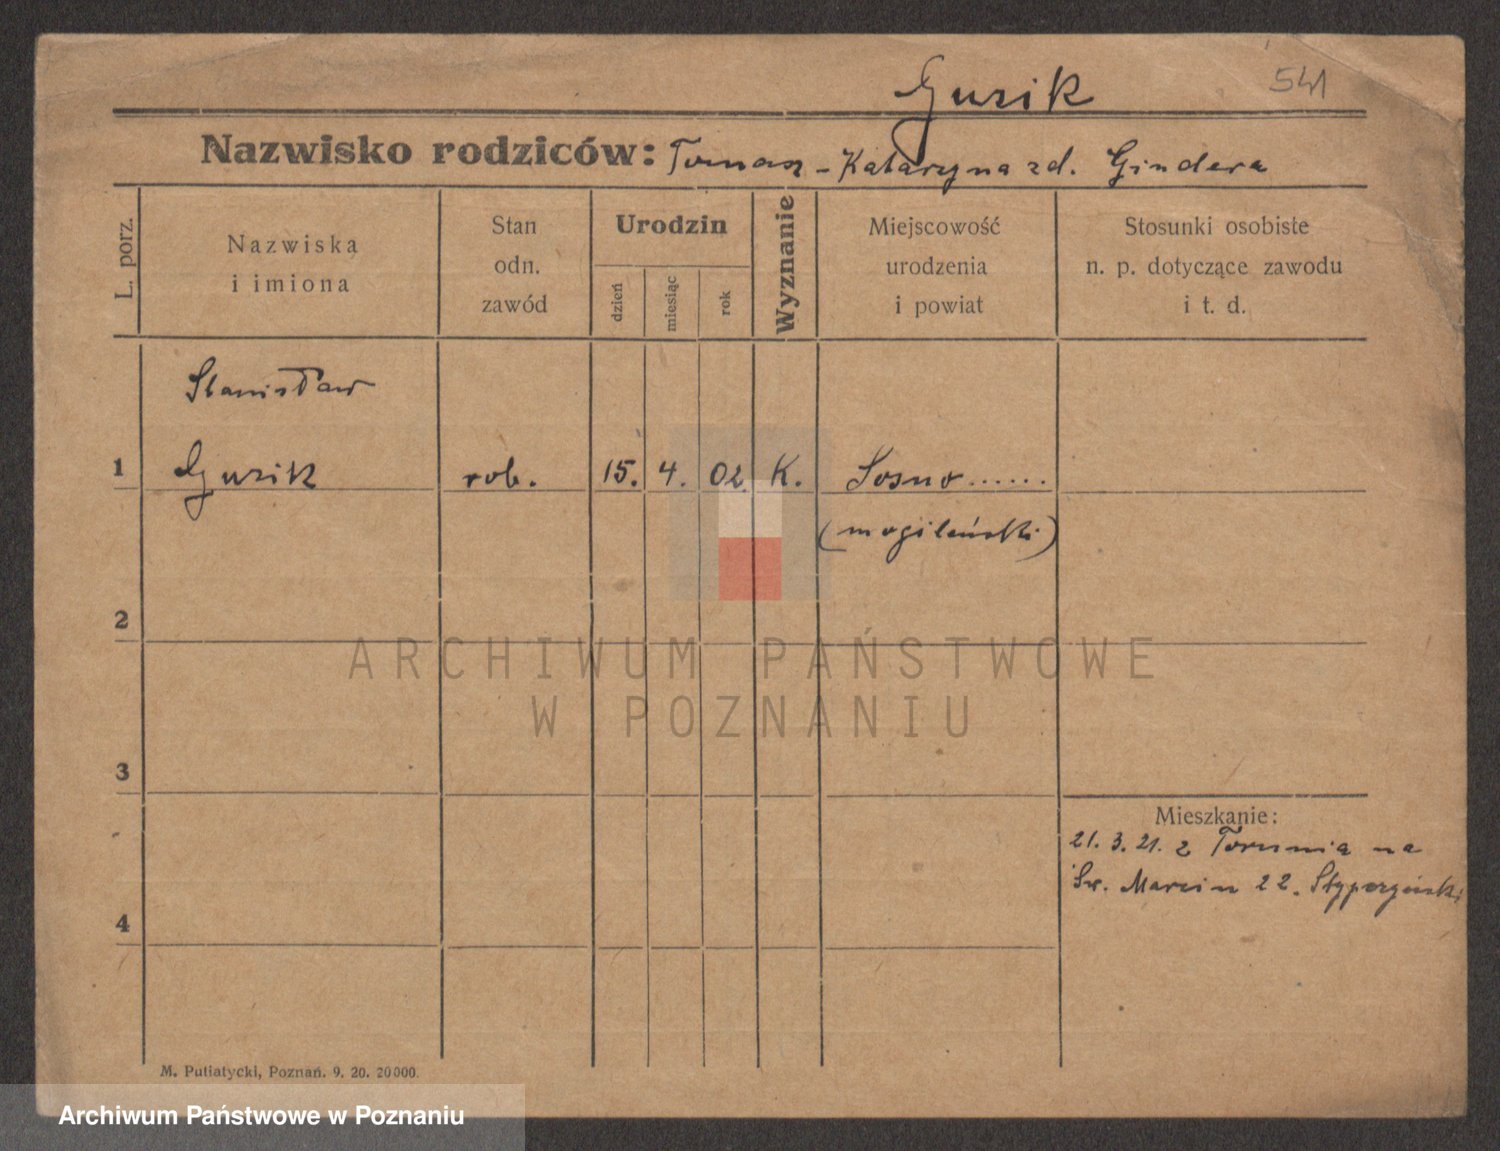 Guzik
541
Nazwisko rodziców: Tomasz - Katarzyna zd. Gindera
L. porz.
Nazwiska
i imiona
Stan
odn.
zawód
Urodzin
dzień
miesiąc
rok
Wyznanie
Miejscowość
urodzenia
i powiat
Stosunki osobiste
n. p. dotyczące zawodu
i t. d.
Stanisław
1 Guzik rob. 15. 4. 02 K. Sosno......
(mogileński)
2
3
4
Mieszkanie:
21. 3. 21. z Torunia na
Św. Marcin 22.
M. Putiatycki, Poznań. 9. 20. 20000.
ARCHIWUM PAŃSTWOWE
W POZNANIU
Archiwum Państwowe w Poznaniu